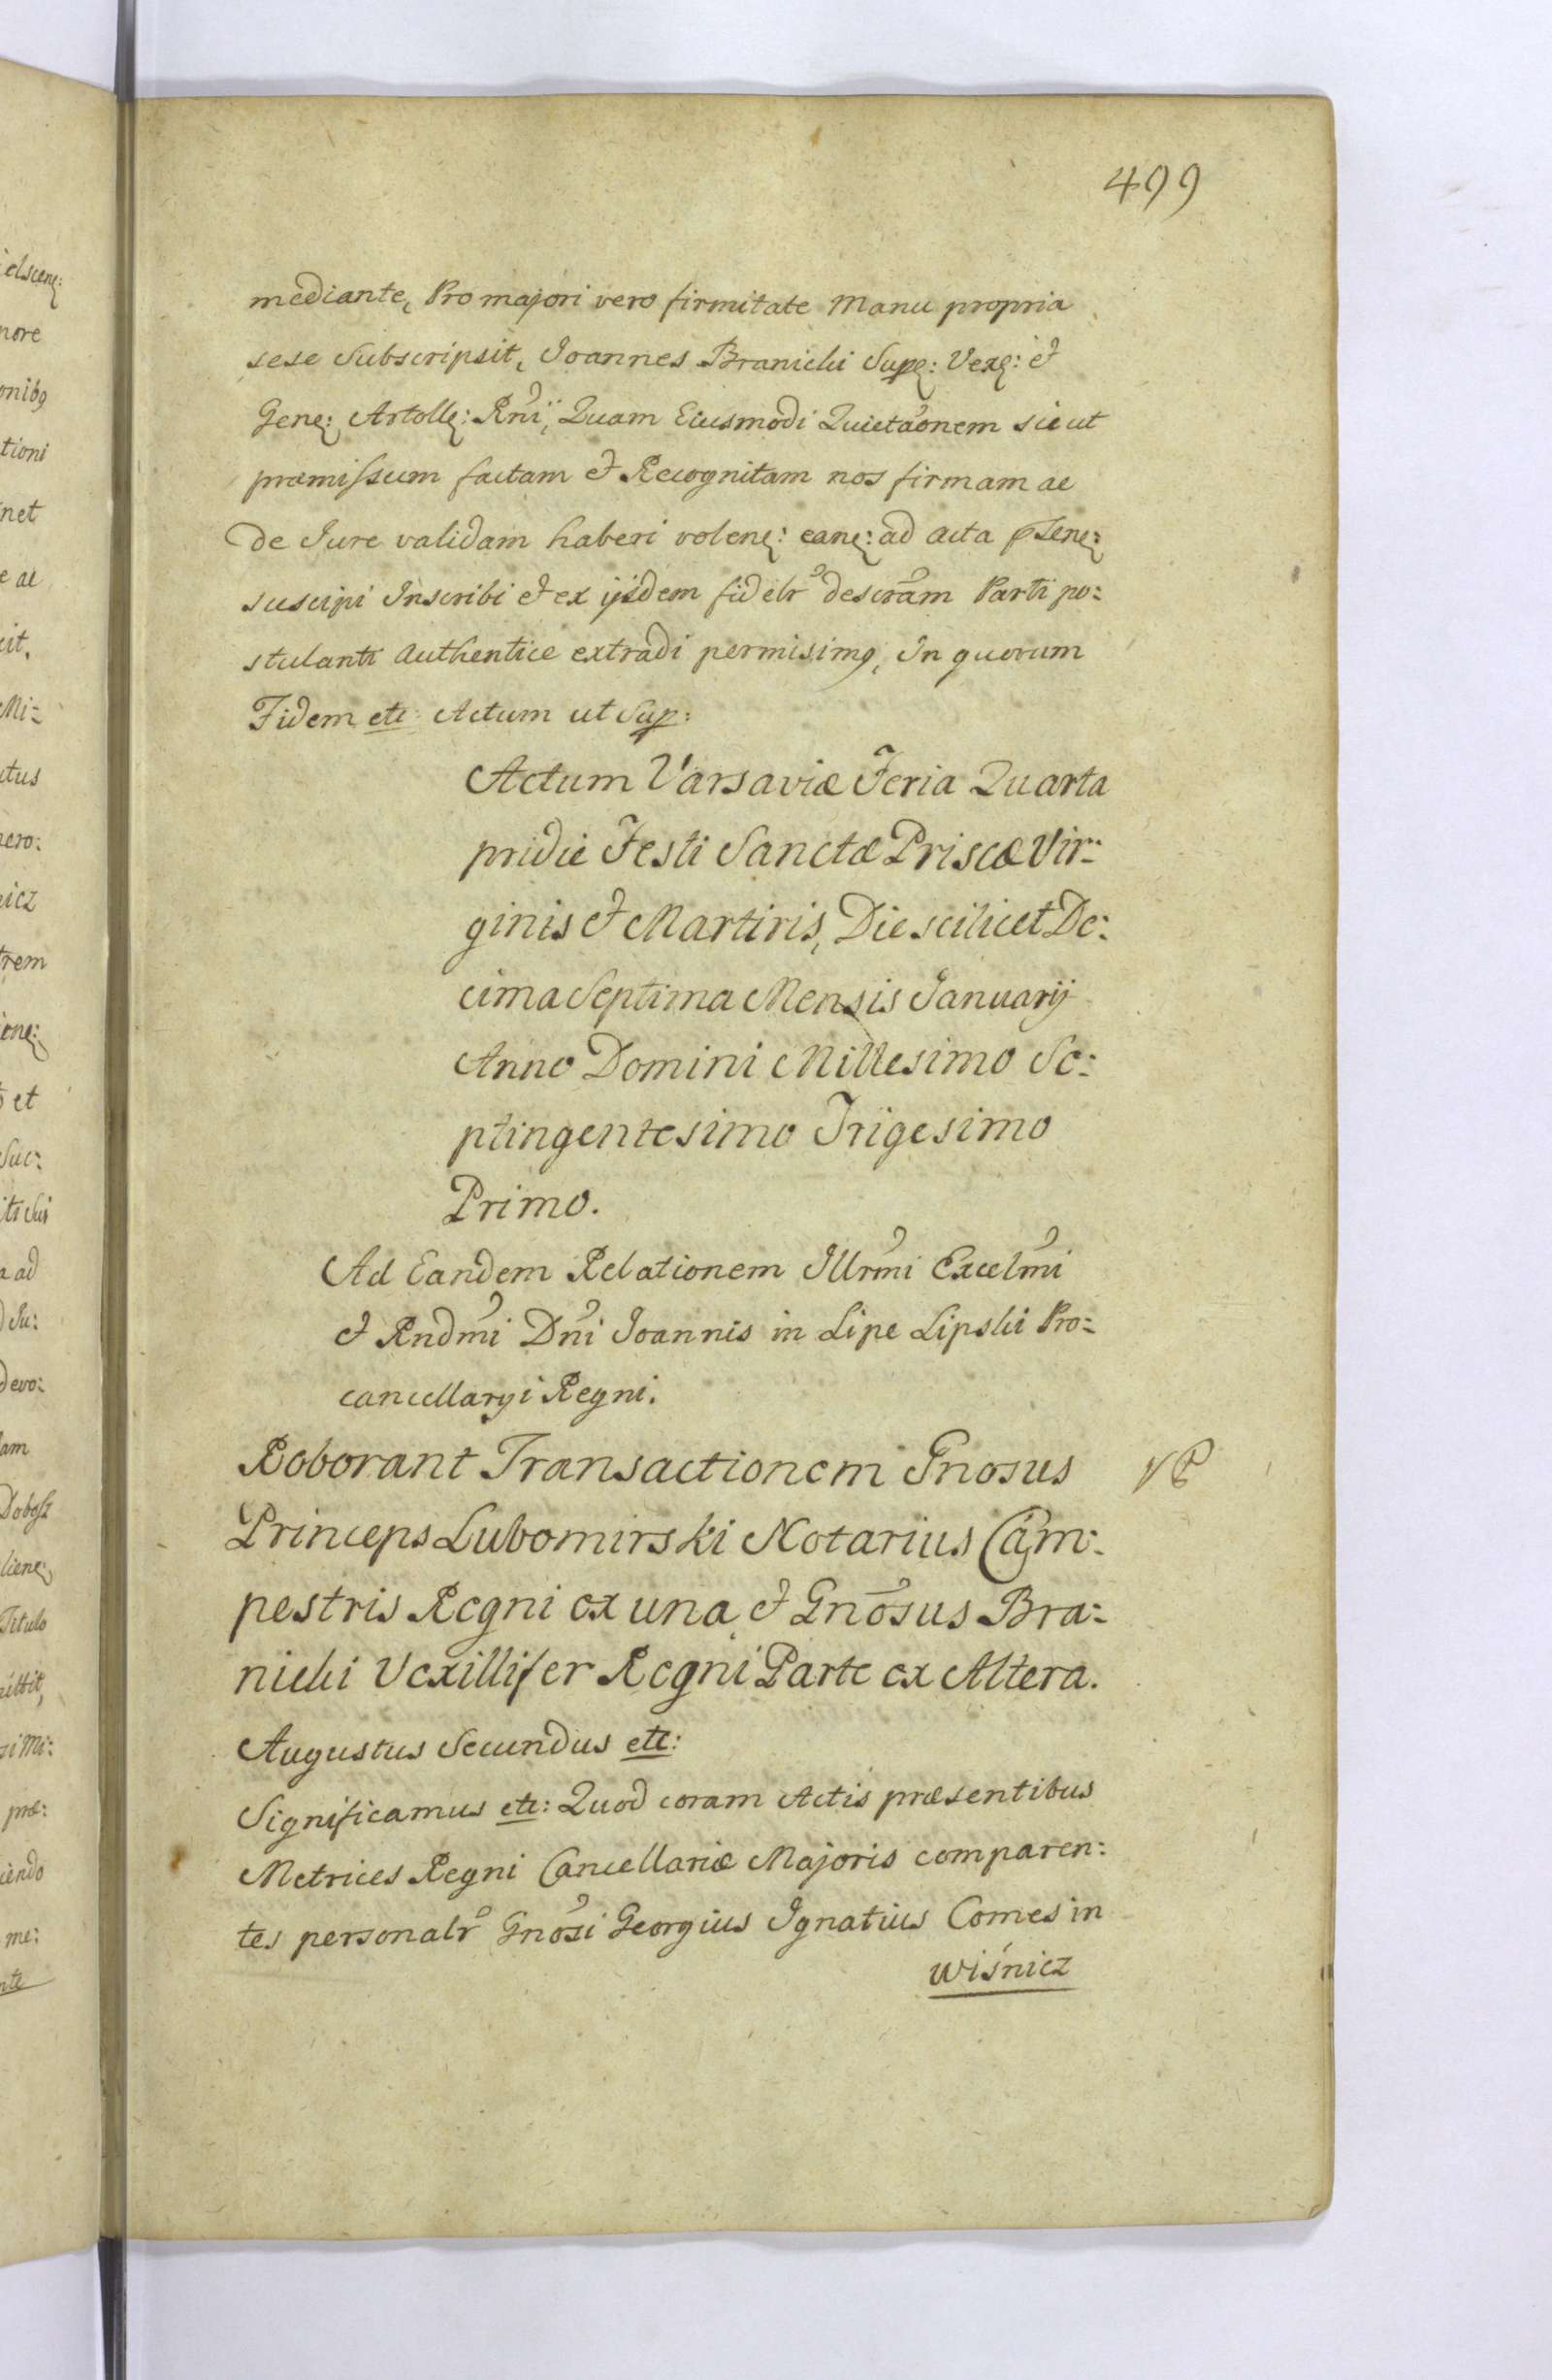 499
mediante, Pro majori vero firmitate Manu propria
sese Subscripsit, Joannes Branicki Sup: Vex: et
Gene: Artolle: Rñi, Quam Eiusmodi Quietãonem sicut
præmissum factam et Recognitam nos firmam ac
De Jure validam haberi volen: ean: ad acta pseñ:
suscipi Inscribi et ex ijsdem fidelr descrãm Parti po:
stulanti Authentice extradi permisimq, In quorum
Fidem etc Actum ut Sup:
Actum Varsaviæ Feria Quarta
pridie Festi Sanctæ Priscæ Vir:
ginis et Martiris, Die scilicet De:
cima Septima Mensis Januarij
Anno Domini Millesimo Se:
ptingentesimo Trigesimo
Primo.
Ad Eandem Relationem Illrm̃i Excelm̃i
et Rndm̃i Dñi Joannis in Lipe Lipski Pro:
cancellaryi Regni.
Roborant Transactionem Gnosus
Princeps Lubomirski Notarius Cam:
pestris Regni ex una et Gnõsus Bra:
nicki Vexillifer Regni Parte ex Altera.
Augustus Secundus etc:
Significamus etc: Quod coram Actis præsentibus
Metrices Regni Cancellariæ Majoris comparen:
tes personalr Gnõsi Georgius Ignatius Comes in
Wiśnicz